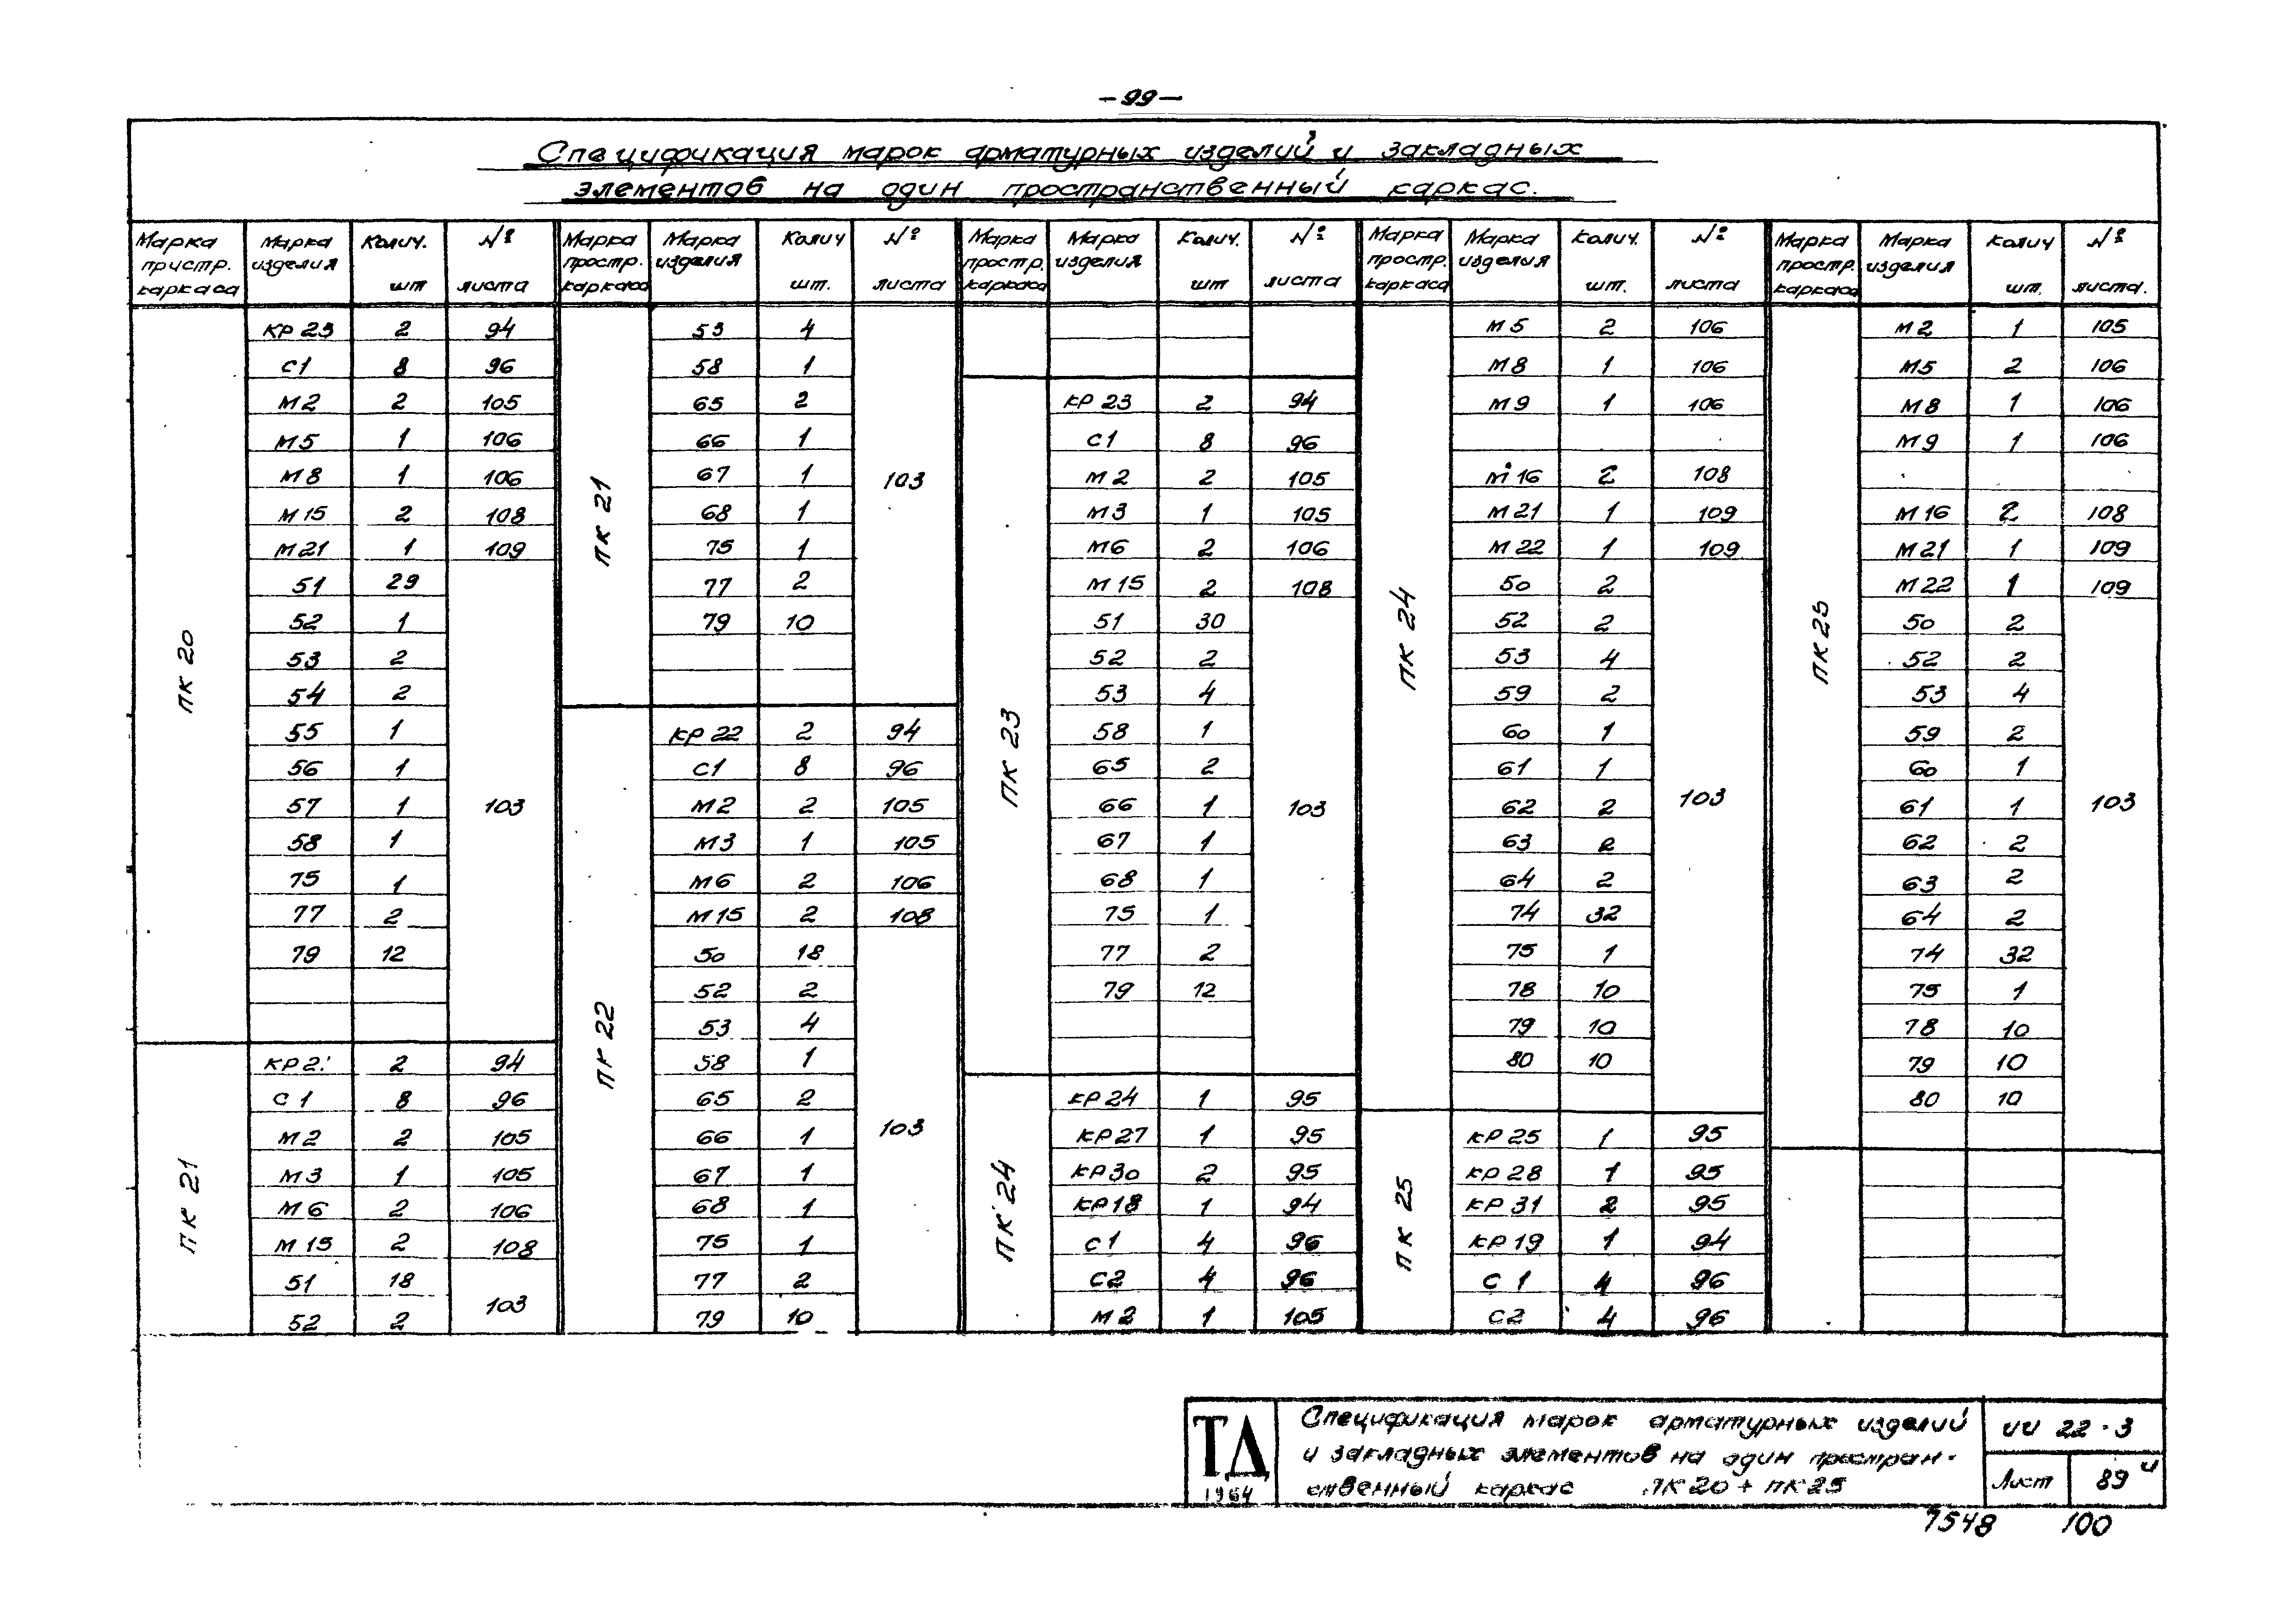 -99-
Спецификация марок арматурных изделий и закладных
элементов на один пространственный каркас.
Марка простр. каркаса Марка изделия Колич. шт № листа
ПК 20
КР 23 2 94
С1 8 96
М2 2 105
М5 1 106
М8 1 106
М15 2 108
М21 1 109
51 29
52 1
53 2
54 2
55 1
56 1
57 1 103
58 1
75 1
77 2
79 12
ПК 21
2 94
С1 8 96
М2 2 105
М3 1 105
М6 2 106
М15 2 108
51 18
103
52 2
Марка простр. каркаса Марка изделия Колич шт. № листа
ПК 21
53 4
58 1
65 2
66 1
67 1 103
68 1
75 1
77 2
79 10
ПК 22
КР 22 2 94
С1 8 96
М2 2 105
М3 1 105
М6 2 106
М15 2 108
50 18
52 2
53 4
58 1
65 2
103
66 1
67 1
68 1
75 1
77 2
79 10
Марка простр. каркаса Марка изделия Колич. шт № листа
ПК 23
КР 23 2 94
С1 8 96
М2 2 105
М3 1 105
М6 2 106
М15 2 108
51 30
52 2
53 4
58 1
65 2
66 1 103
67 1
68 1
75 1
77 2
79 12
ПК 24
КР 24 1 95
КР 27 1 95
КР 30 2 95
КР 18 1 94
С1 4 96
С2 4 96
М2 1 105
Марка простр. каркаса Марка изделия Колич. шт. № листа
ПК 24
М5 2 106
М8 1 106
М9 1 106
М16 2 108
М21 1 109
М22 1 109
50 2
52 2
53 4
59 2
60 1
61 1
62 2 103
63 2
64 2
74 32
75 1
78 10
79 10
80 10
ПК 25
КР 25 1 95
КР 28 1 95
КР 31 2 95
КР 19 1 94
С1 4 96
С2 4 96
Марка простр. каркаса Марка изделия Колич шт. № листа.
ПК 25
М2 1 105
М5 2 106
М8 1 106
М9 1 106
М16 2 108
М21 1 109
М22 1 109
50 2
52 2
53 4
59 2
60 1
61 1 103
62 2
63 2
64 2
74 32
75 1
78 10
79 10
80 10
ТД
1964
Спецификация марок арматурных изделий
и закладных элементов на один простран-
ственный каркас ПК 20 ÷ ПК 25
ИИ 22-3
Лист 89и
7548 100